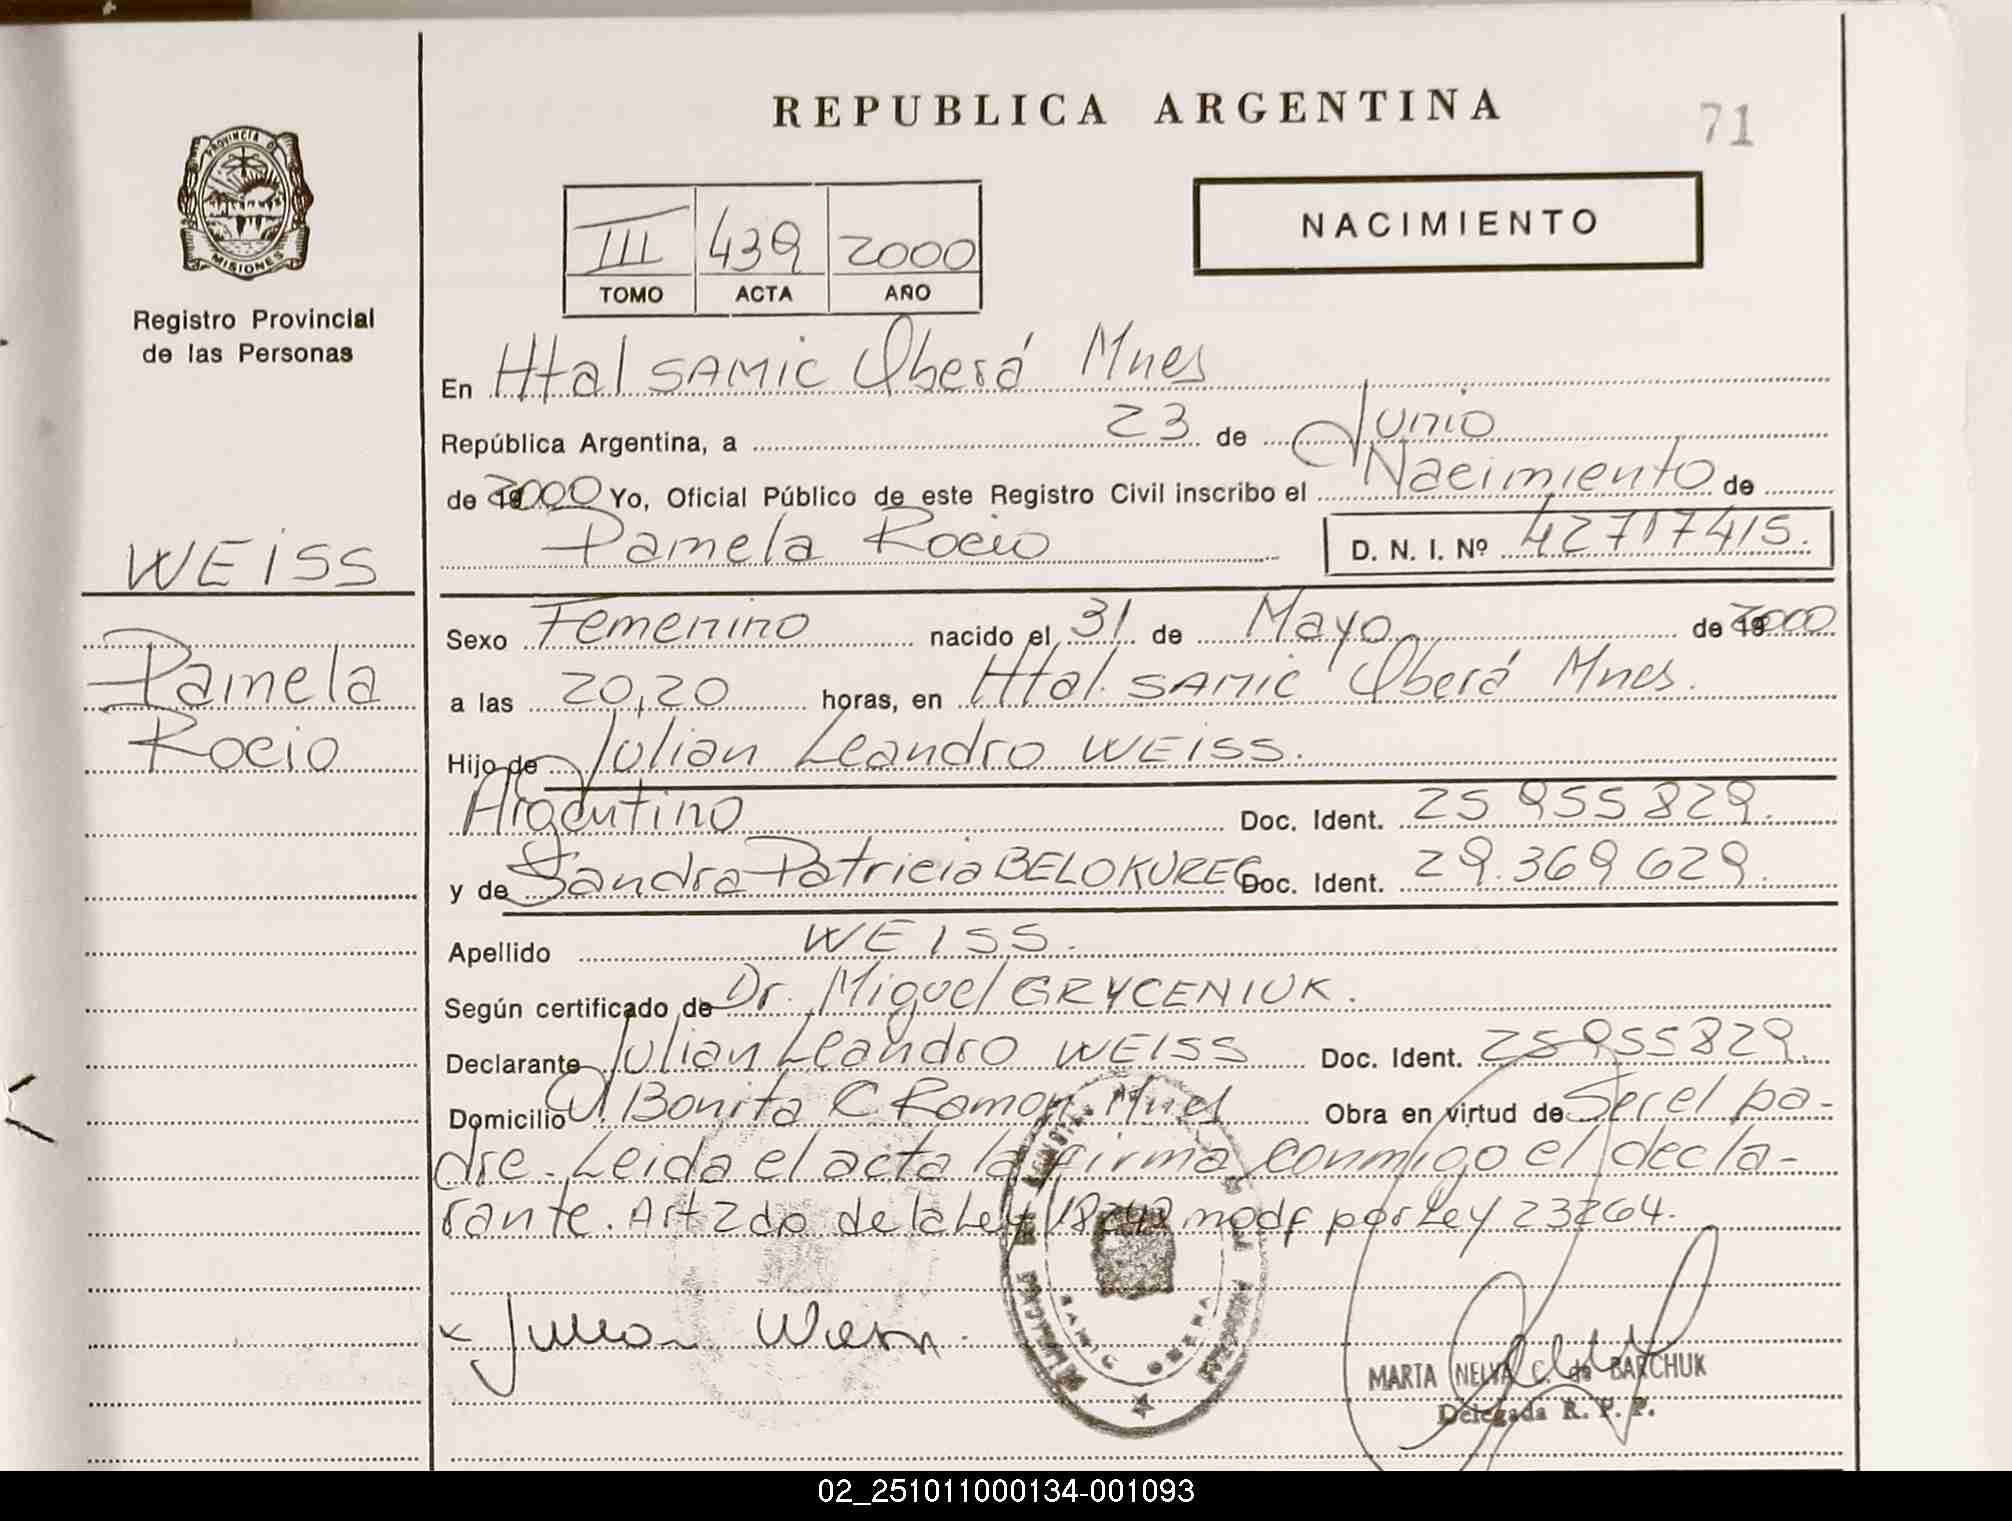 REPUBLICA ARGENTINA
71
PROVINCIA DE
MISIONES
Registro Provincial
de las Personas
III 439 2000
TOMO ACTA AÑO
NACIMIENTO
En Htal SAMIC Oberá Mnes
República Argentina, a 23 de Junio
de 2000 Yo, Oficial Público de este Registro Civil inscribo el Nacimiento de
Pamela Rocio D. N. I. Nº 42717415.
WEISS
Pamela
Rocio
Sexo Femenino nacido el 31 de Mayo de 2000
a las 20,20 horas, en Htal. SAMIC Oberá Mnes.
Hijo de Julian Leandro WEISS.
Argentino Doc. Ident. 25 955 829.
y de Sandra Patricia BELOKUREC Doc. Ident. 29.369 629.
Apellido WEISS.
Según certificado de Dr. Miguel GRYCENIUK.
Declarante Julian Leandro WEISS Doc. Ident. 25 955 829.
Domicilio Bonita C Ramon Mnes Obra en virtud de Ser el pa-
dre. Leida el acta la firma conmigo el decla-
rante. Art 2do de la Ley 18248 modf por Ley 23264.
x Julian Weiss.
SAMIC OBERA
MARTA NELVA C. de BARCHUK
Delegada R. P. P.
02_251011000134-001093